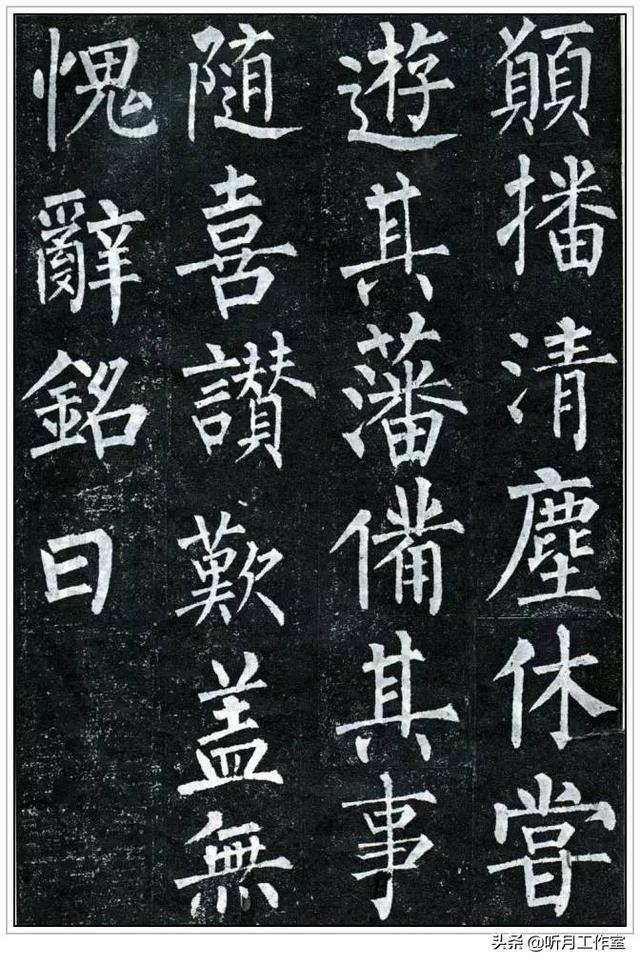 願播清塵休嘗
遊其藩備其事
隨喜讃歎盖無
愧辭銘曰
头条 @听月工作室